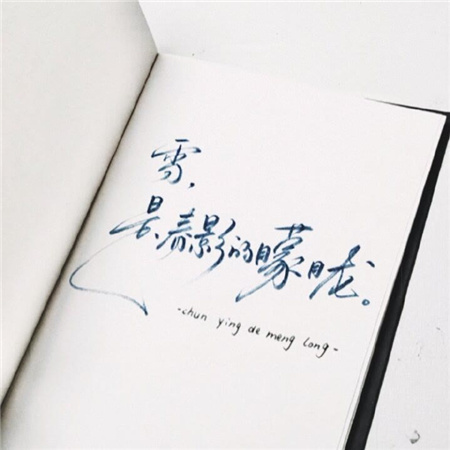 雪，
是春影的朦胧。
-chun ying de meng long-